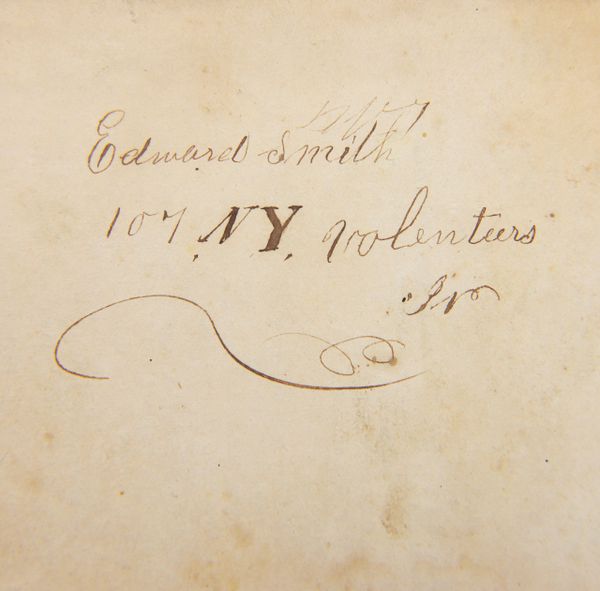 Edward Smith
107 N.Y. Volenteers